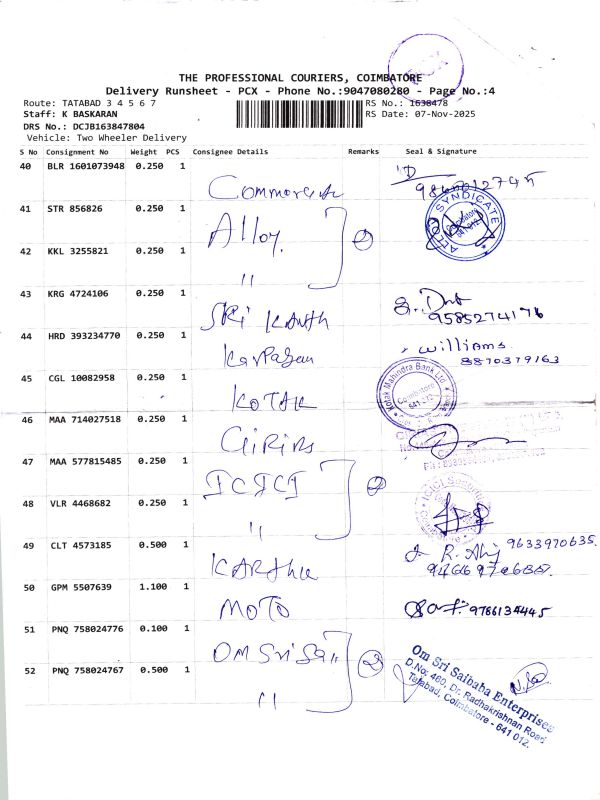 THE PROFESSIONAL COURIERS, COIMBATORE
Delivery Runsheet - PCX - Phone No.:9047080280 - Page No.:4
Route: TATABAD 3 4 5 6 7
RS No.: 1638478
Staff: K BASKARAN
RS Date: 07-Nov-2025
DRS No.: DCJB163847804
Vehicle: Two Wheeler Delivery
S No Consignment No Weight PCS Consignee Details Remarks Seal & Signature
40 BLR 1601073948 0.250 1
41 STR 856826 0.250 1 Alloy
ALLOY SYNDICATE Coimbatore 641 012
42 KKL 3255821 0.250 1 "
2
43 KRG 4724106 0.250 1 SRi KANth
9585274176
44 HRD 393234770 0.250 1 Karpagam
williams
8870379163
45 CGL 10082958 0.250 1 KOTAK
Kotak Mahindra Bank Ltd Coimbatore 641 012
46 MAA 714027518 0.250 1
47 MAA 577815485 0.250 1 ICICI
48 VLR 4468682 0.250 1 "
2
49 CLT 4573185 0.500 1
9633970635
50 GPM 5507639 1.100 1 MOTO
9786134445
51 PNQ 758024776 0.100 1 OM Sri Sai
52 PNQ 758024767 0.500 1 "
2
Om Sri Saibaba Enterprises
D.No: 480, Dr. Radhakrishnan Road
Tatabad, Coimbatore - 641 012.